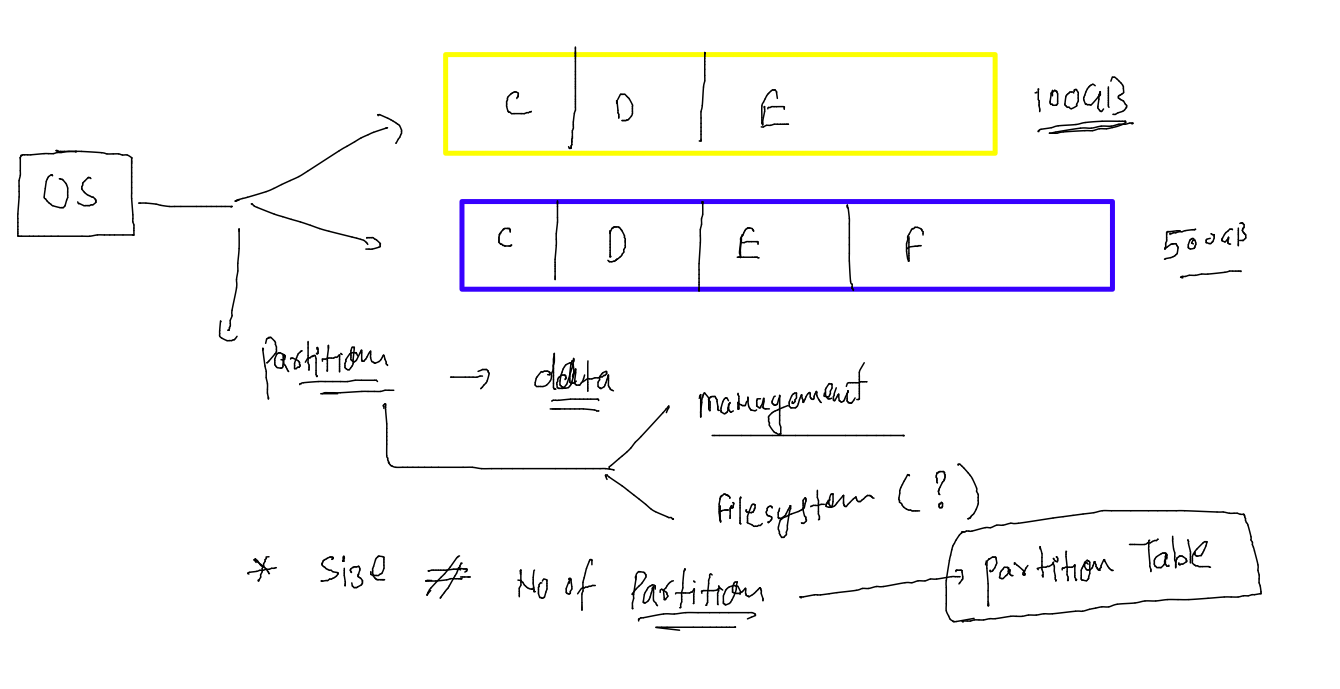 C D E 100GB
OS
C D E F 500GB
Partition → data
Management
Filesystem (?)
* Size ≠ No of Partition → Partition Table